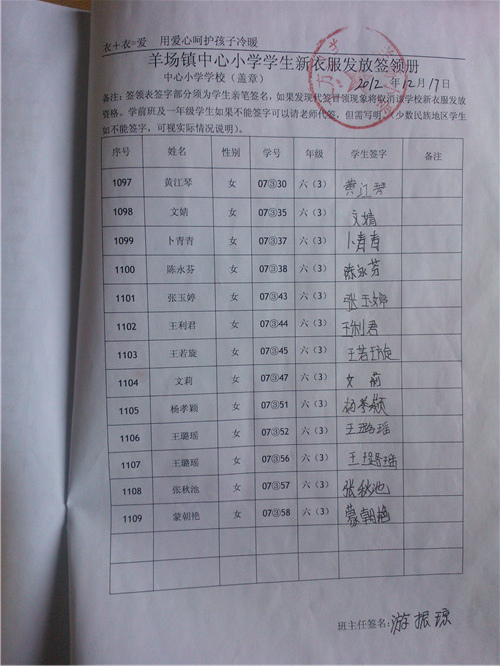 衣+衣=爱 用爱心呵护孩子冷暖
羊场镇中心小学学生新衣服发放签领册
中心小学学校（盖章） 2012年12月17日
备注：签领表签字部分须为学生亲笔签名，如果发现代签冒领现象将取消该学校新衣服发放
资格。学前班及一年级学生如果不能签字可以请老师代签，但需写明。（少数民族地区学生
如不能签字，可视实际情况说明）。
序号 姓名 性别 学号 年级 学生签字 备注
1097 黄江琴 女 07③30 六（3） 黄江琴
1098 文婧 女 07③35 六（3） 文婧
1099 卜青青 女 07③37 六（3） 卜青青
1100 陈永芬 女 07③38 六（3） 陈永芬
1101 张玉婷 女 07③43 六（3） 张玉婷
1102 王利君 女 07③44 六（3） 王利君
1103 王若旋 女 07③45 六（3） 王若琁
1104 文莉 女 07③47 六（3） 文莉
1105 杨孝颖 女 07③51 六（3） 杨孝颖
1106 王璐瑶 女 07③52 六（3） 王璐瑶
1107 王璐瑶 女 07③56 六（3） 王璐瑶
1108 张秋池 女 07③57 六（3） 张秋池
1109 蒙朝艳 女 07③58 六（3） 蒙朝艳
班主任签名：游振琼